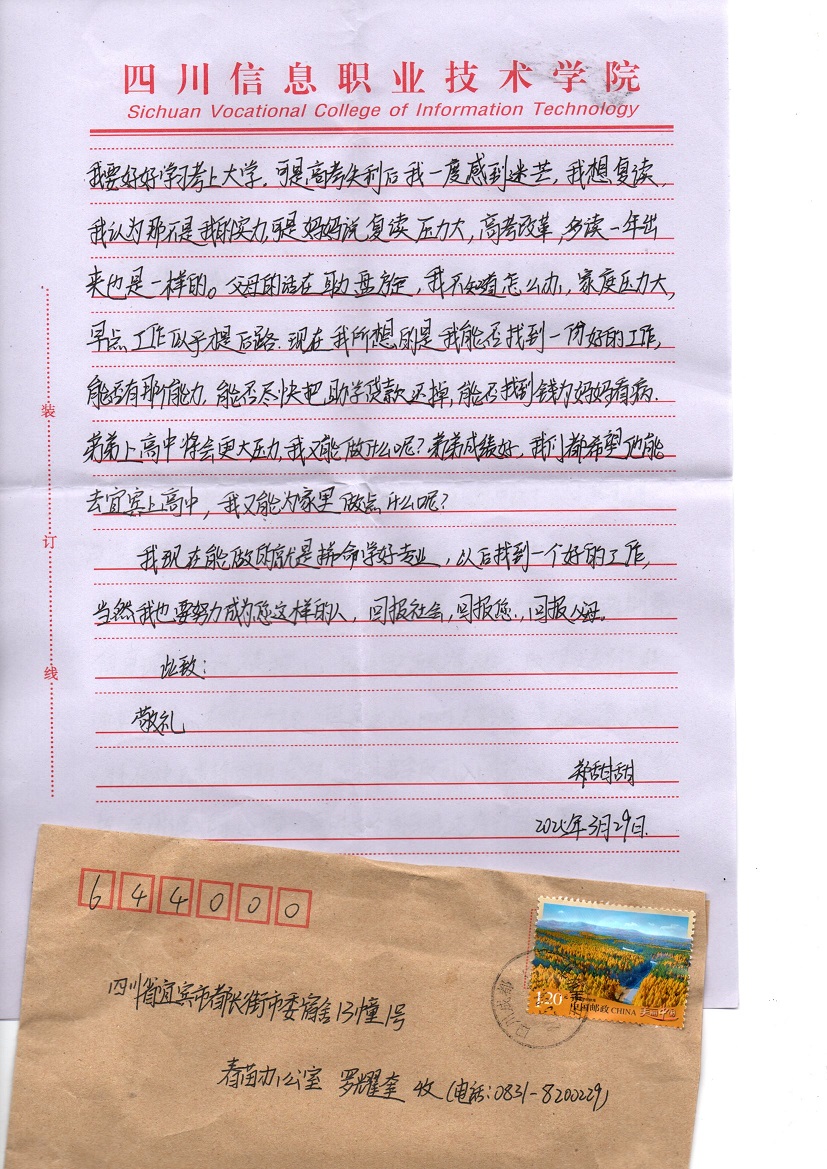 四川信息职业技术学院
Sichuan Vocational College of Information Technology
我要好好学习考上大学，可是高考失利后我一度感到迷茫，我想复读，
我认为那不是我的实力，可是妈妈说复读压力大，高考改革，多读一年出
来也是一样的。父母的话在耳边盘旋，我不知道怎么办，家庭压力大，
早点工作似乎是后路。现在我所想的是我能否找到一份好的工作，
能否有那个能力，能否尽快把助学贷款还掉，能否找到钱为妈妈看病．
弟弟上高中将会更大压力，我又能做什么呢？弟弟成绩好，我们都希望他能
去宜宾上高中，我又能为家里做点什么呢？
我现在能做的就是拼命学好专业，以后找到一个好的工作，
当然我也要努力成为您这样的人，回报社会，回报您，回报父母。
此致：
敬礼
郑甜甜
2025年3月29日．
装
订
线
644000
四川省宜宾市都长街市委宿舍13幢1号
春苗办公室 罗耀奎 收（电话：0831-8200229）
1.20
中国邮政 CHINA
美丽中国
四川成都